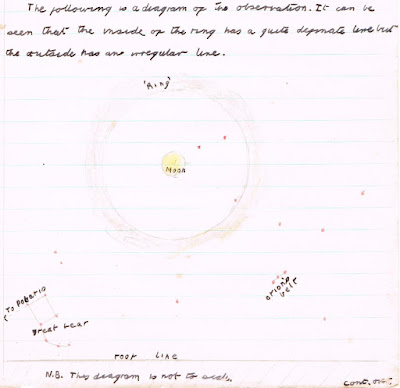 The following is a diagram of the observation. It can be
seen that the inside of the ring has a quite definate line but
the outside has an irregular line.
'Ring'
MOON
(To Polaris
Great Bear
orion's
belt
roof line
N.B. This diagram is not to scale.
cont. over